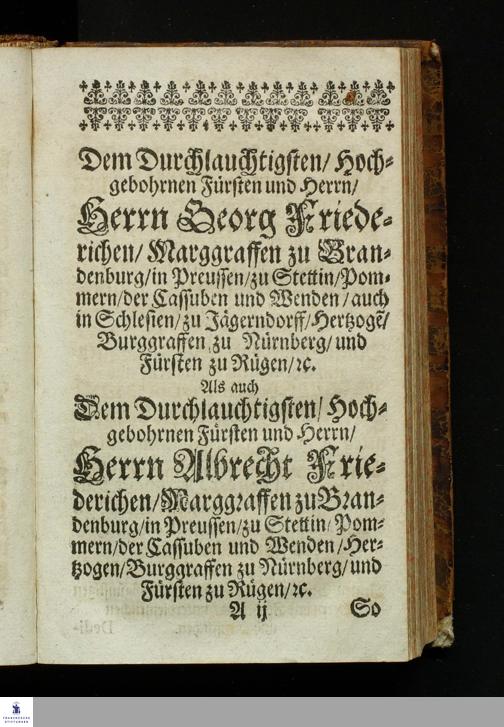 Dem Durchlauchtigsten/ Hoch-
gebohrnen Fürsten und Herrn/
Herrn Georg Friede-
richen/ Marggraffen zu Bran-
denburg/in Preussen/zu Stettin/Pom-
mern/der Cassuben und Wenden/auch
in Schlesien/zu Jägerndorff/Hertzogẽ/
Burggraffen zu Nürnberg/und
Fürsten zu Rügen/ꝛc.
Als auch
Dem Durchlauchtigsten/ Hoch-
gebohrnen Fürsten und Herrn/
Herrn Albrecht Frie-
derichen/Marggraffen zu Bran-
denburg/in Preussen/zu Stettin/Pom-
mern/der Cassuben und Wenden/Her-
tzogen/Burggraffen zu Nürnberg/und
Fürsten zu Rügen/ꝛc.
A ij So
FRANCKESCHE
STIFTUNGEN